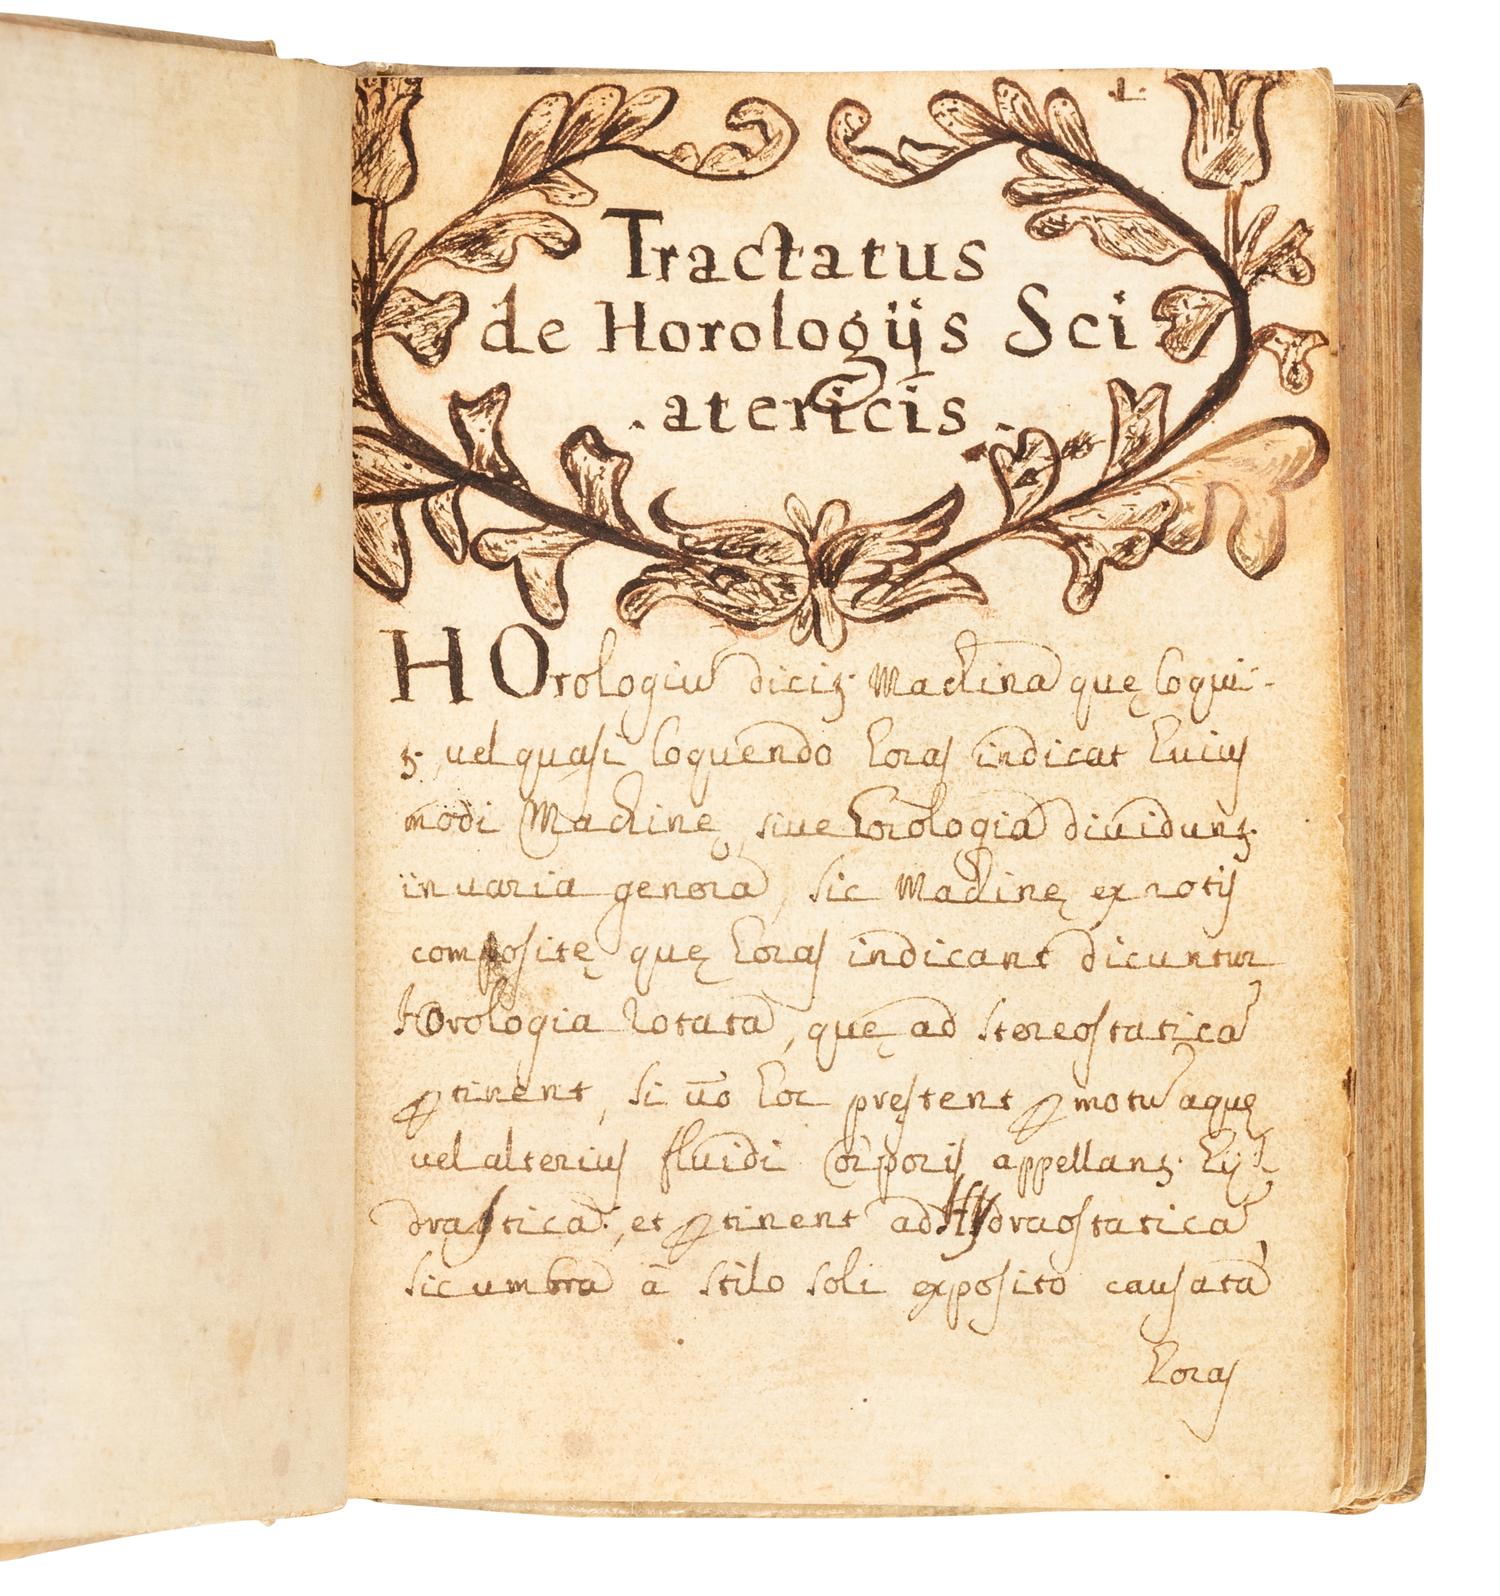 .1.
Tractatus
de Horologijs Sci
. atericis .
HOrologiũ dicitꝫ Machina quę loqui-
tꝫ, vel quasi loquendo horas indicat huius
modi Machinę, siue horologia diuiduntꝫ
in uaria genera, sic Machinę ex rotis
compositę quę horas indicant dicuntur
Horologia rotata, quę ad stereostaticã
ꝑtinent, si ũo hoc prestent ꝑ motũ aquę
uel alterius fluidi corporis appellantꝫ hy
drastica, et ꝑtinent ad Hydraostaticã,
sic umbra à stilo soli exposito causata
horas